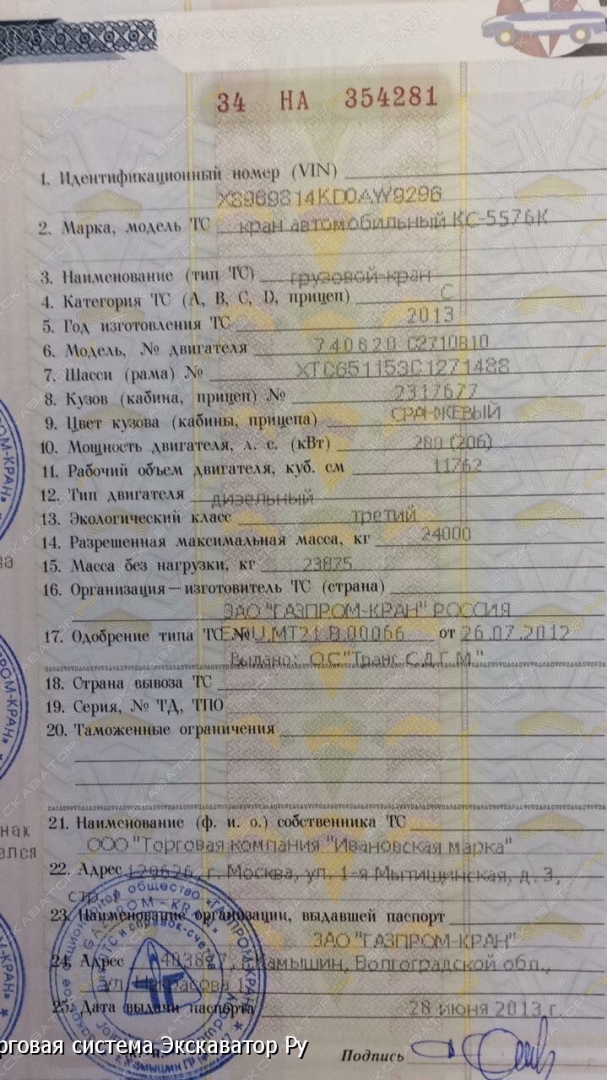 34 НА 354281
1. Идентификационный номер (VIN)
X8969814KD0AW9296
2. Марка, модель ТС кран автомобильный КС-5576К
3. Наименование (тип ТС) грузовой-кран
4. Категория ТС (А, В, С, D, прицеп) С
5. Год изготовления ТС 2013
6. Модель, № двигателя 740620 C2710810
7. Шасси (рама) № XTC651153C1271488
8. Кузов (кабина, прицеп) № 2317677
9. Цвет кузова (кабины, прицепа) ОРАНЖЕВЫЙ
10. Мощность двигателя, л. с. (кВт) 280 (206)
11. Рабочий объем двигателя, куб. см 11762
12. Тип двигателя дизельный
13. Экологический класс третий
14. Разрешенная максимальная масса, кг 24000
15. Масса без нагрузки, кг 23875
16. Организация—изготовитель ТС (страна)
ЗАО "ГАЗПРОМ-КРАН" РОССИЯ
17. Одобрение типа ТС № МТ21.В.00066 от 26.07.2012
Выдано: ОС "Транс С.Д.Г.М."
18. Страна вывоза ТС
19. Серия, № ТД, ТПО
20. Таможенные ограничения
21. Наименование (ф. и. о.) собственника ТС
ООО "Торговая компания "Ивановская марка"
22. Адрес 129626, г. Москва, ул. 1-я Мытищинская, д. 3,
стр.
23. Наименование организации, выдавшей паспорт
ЗАО "ГАЗПРОМ-КРАН"
24. Адрес 403887, г. Камышин, Волгоградской обл.,
ул. Некрасова 1
25. Дата выдачи паспорта 28 июня 2013 г.
Подпись
орговая система Экскаватор Ру